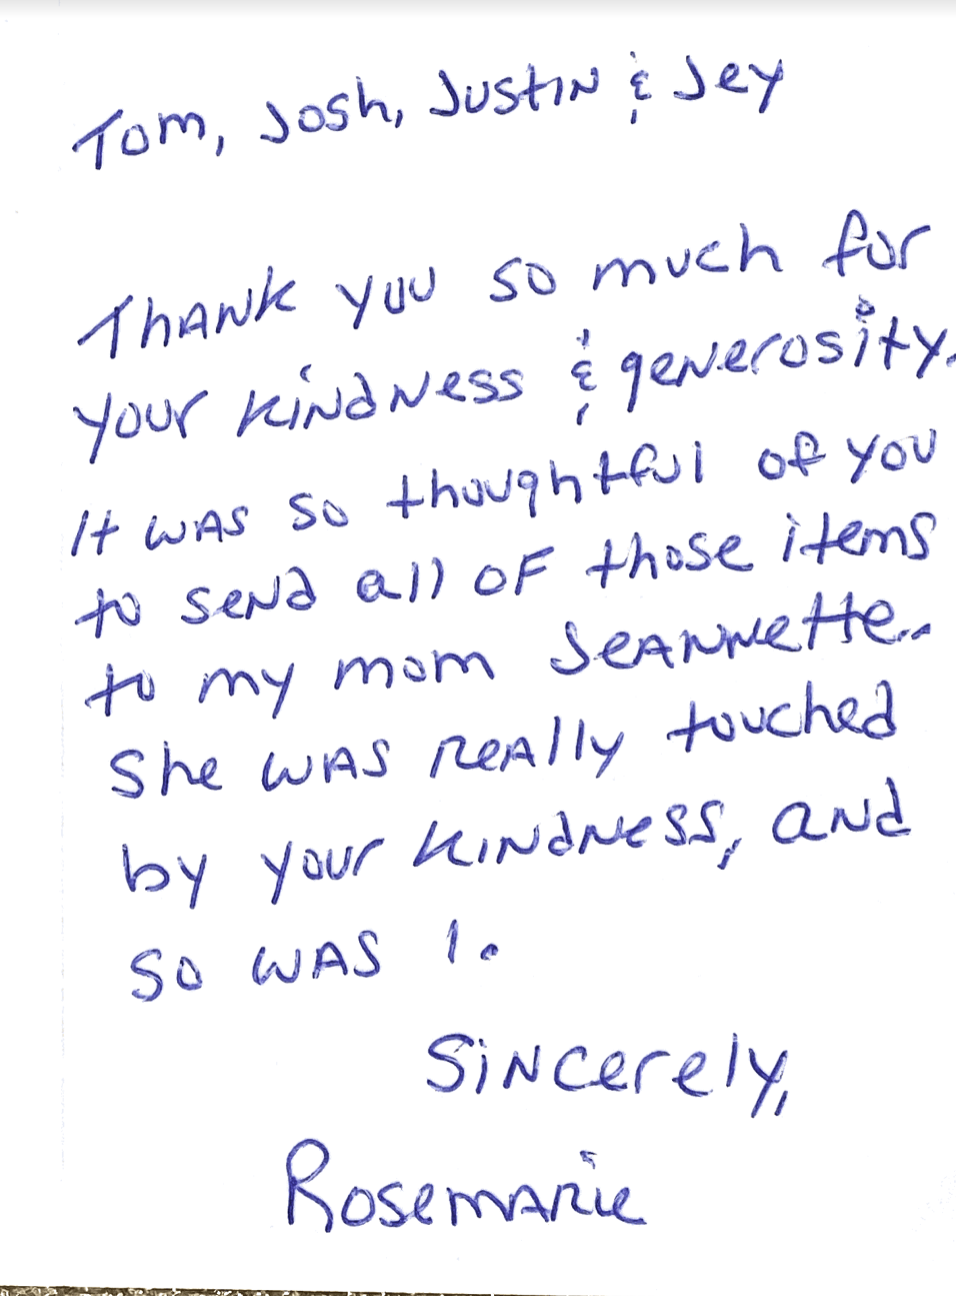 Tom, Josh, Justin & Jey
Thank you so much for
your kindness & generosity.
It was so thoughtful of you
to send all of those items
to my mom Jeannette.
She was really touched
by your kindness, and
so was I.
Sincerely,
Rosemarie